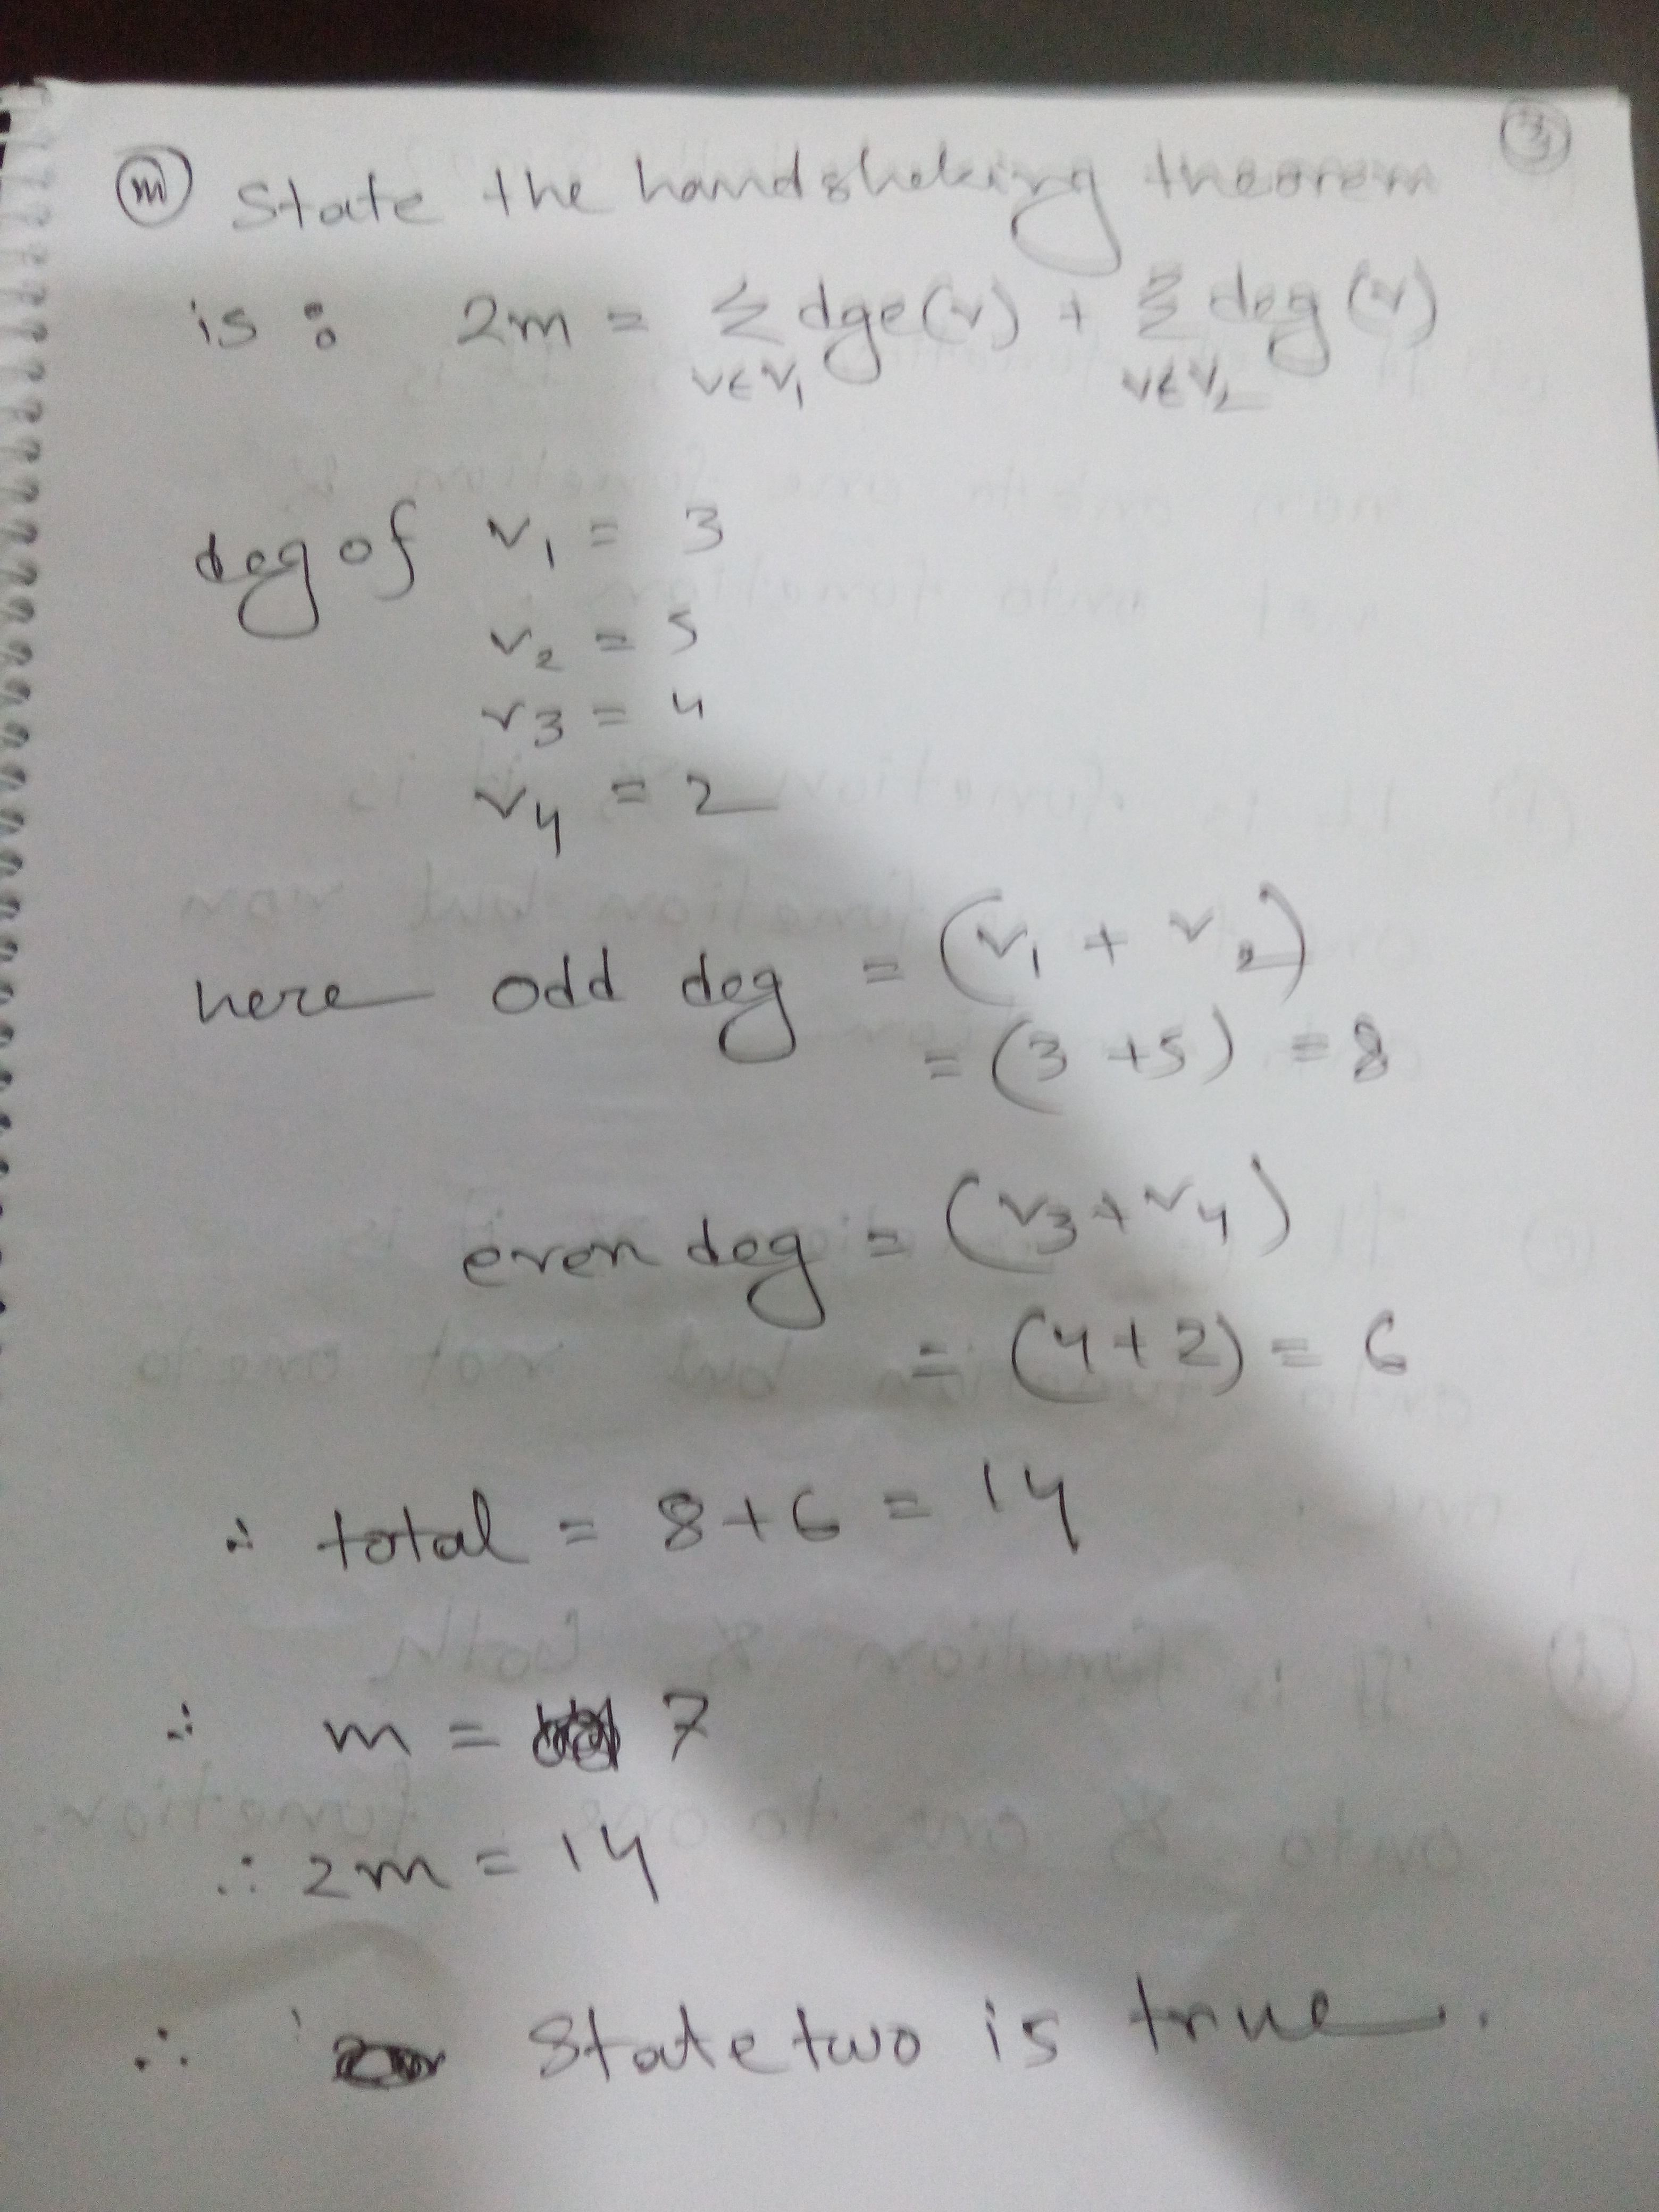 3
m State the handsheking theorem
is : 2m = Σ dge(v) + Σ deg (v)
v∈V₁ v∈V₂
deg of v₁ = 3
v₂ = 5
v3 = 4
v4 = 2
here odd deg = (v₁ + v₂)
= (3 +5) = 8
even deg = (v3+v4)
= (4+2) = 6
∴ total = 8+6 = 14
∴ m = 7
∴ 2m = 14
∴ State two is true.